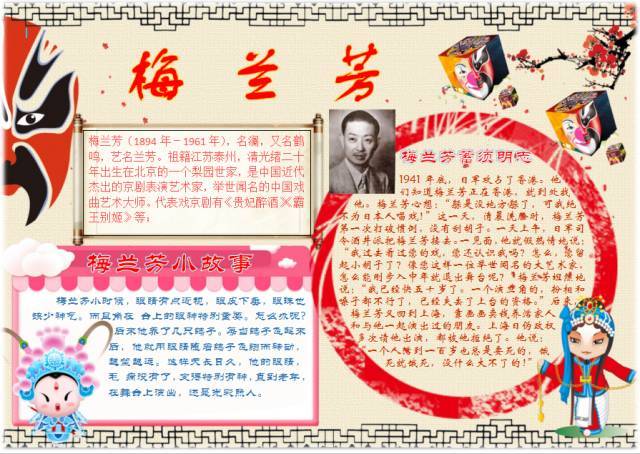 梅 兰 芳
梅兰芳（1894 年－1961 年），名澜，又名鹤
鸣，艺名兰芳。祖籍江苏泰州，清光绪二十
年出生在北京的一个梨园世家，是中国近代
杰出的京剧表演艺术家，举世闻名的中国戏
曲艺术大师。代表戏京剧有《贵妃醉酒》《霸
王别姬》等；
梅兰芳小故事
梅兰芳小时候，眼睛有点近视，眼皮下垂，眼珠也
缺少神气。而旦角在 台上的眼神特别重要。怎么办呢？
后来他养了几只鸽子。每当鸽子飞起来
后，他就用眼睛随着鸽子飞翔而转动，
越望越远。这样天长日久，他的眼睛，
毛 病没有了，变得特别有神，直到老年，
在舞台上演出，还是光彩照人。
梅兰芳蓄须明志
1941 年底，日军攻占了香港。他
们知道梅兰芳正在香港，就到处找
他。梅兰芳心想：“躲是没地方躲了，可我绝
不为日本人唱戏！”这一天，清晨洗脸时，梅兰芳
第一次打破惯例，没有刮胡子。一天上午，日军司
令酒井派把梅兰芳接去。一见面，他就假热情地说：
“我过去看过您的戏，您还认识我吗？怎么，您留
起小胡子了？像您这样一位举世闻名的大艺术家，
怎么您刚步入中年就退出舞台呢？”梅兰芳坦然地
说：“我已经快五十岁了。一个演旦角的，扮相和
嗓子都不行了，已经失去了上台的资格。”后来，
梅兰芳又回到上海，靠画画卖钱养活家人
和与他一起演出过的朋友。上海日伪政权
多次请他出演，都被他拒绝了。他说：
“一个人活到一百岁也总是要死的，饿
死就饿死，没什么大不了的！”